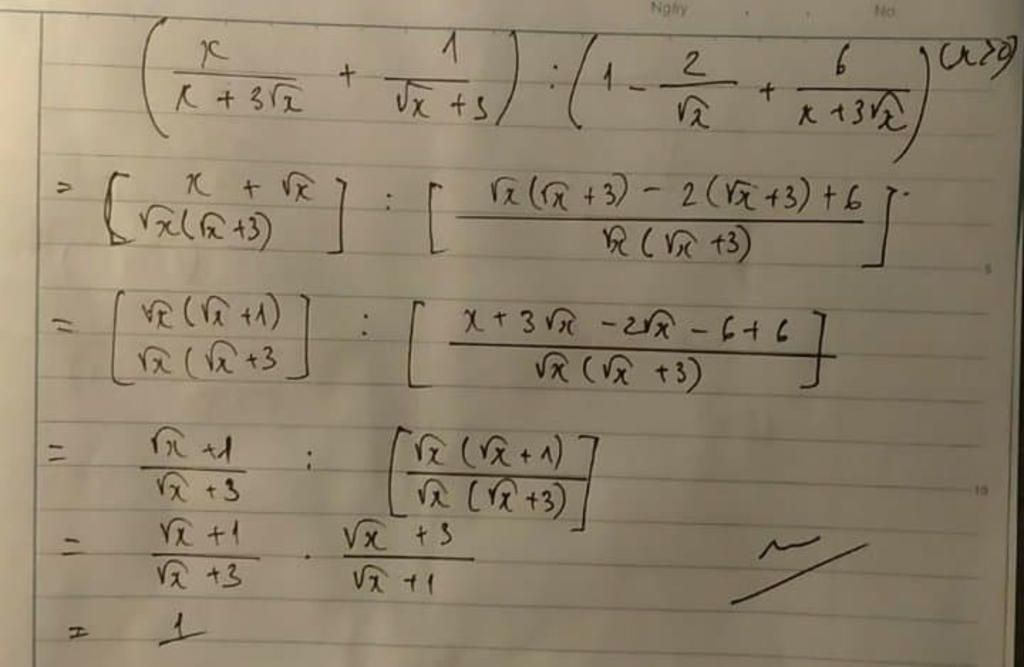 Ngày No
(x / (x + 3√x) + 1 / (√x + 3)) : (1 - 2 / √x + 6 / (x + 3√x)) (x>0)
= [(x + √x) / (√x(√x+3))] : [(√x(√x+3) - 2(√x+3) + 6) / (√x(√x+3))]
= [(√x(√x+1)) / (√x(√x+3)] : [(x + 3√x - 2√x - 6 + 6) / (√x(√x+3))]
= (√x+1) / (√x+3) : [(√x(√x+1)) / (√x(√x+3))]
= (√x+1) / (√x+3) . (√x+3) / (√x+1)
= 1
5
10